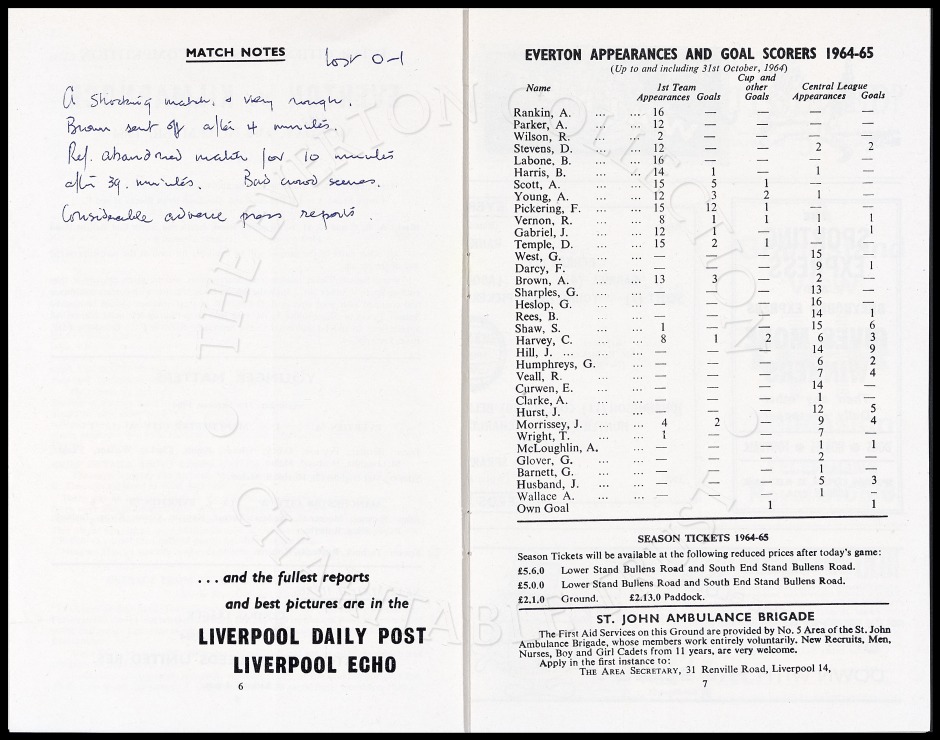 MATCH NOTES
Lost 0-1
A shocking match, & very rough.
Brown sent off after 4 minutes.
Ref. abandoned match for 10 minutes
after 39 minutes. Bad crowd scenes.
Considerable adverse press reports.
THE EVERTON COLLECTION CHARITABLE TRUST
. . . and the fullest reports
and best pictures are in the
LIVERPOOL DAILY POST
LIVERPOOL ECHO
6
EVERTON APPEARANCES AND GOAL SCORERS 1964-65
(Up to and including 31st October, 1964)
Name 1st Team Appearances Goals Cup and other Goals Central League Appearances Goals
Rankin, A. ... ... 16 — — — —
Parker, A. ... ... 12 — — — —
Wilson, R. ... ... 2 — — — —
Stevens, D. ... ... 12 — — 2 2
Labone, B. ... ... 16 — — — —
Harris, B. ... ... 14 1 — 1 —
Scott, A. ... ... 15 5 1 — —
Young, A. ... ... 12 3 2 1 —
Pickering, F. ... ... 15 12 1 — —
Vernon, R. ... ... 8 1 1 1 1
Gabriel, J. ... ... 12 1 — 1 1
Temple, D. ... ... 15 2 1 — —
West, G. ... ... — — — 15 —
Darcy, F. ... ... — — — 9 1
Brown, A. ... ... 13 3 — 2 —
Sharples, G. ... ... — — — 13 —
Heslop, G. ... ... — — — 16 —
Rees, B. ... ... — — — 14 1
Shaw, S. ... ... 1 — — 15 6
Harvey, C. ... ... 8 1 2 6 3
Hill, J. ... ... ... — — — 14 9
Humphreys, G. ... — — — 6 2
Veall, R. ... ... — — — 7 4
Curwen, E. ... ... — — — 14 —
Clarke, A. ... ... — — — 1 —
Hurst, J. ... ... — — — 12 5
Morrissey, J. ... ... 4 2 — 9 4
Wright, T. ... ... 1 — — 7 —
McLoughlin, A. ... — — — 1 1
Glover, G. ... ... — — — 2 —
Barnett, G. ... ... — — — 1 —
Husband, J. ... ... — — — 5 3
Wallace A. ... ... — — — 1 —
Own Goal 1 1
SEASON TICKETS 1964-65
Season Tickets will be available at the following reduced prices after today's game:
£5.6.0 Lower Stand Bullens Road and South End Stand Bullens Road.
£5.0.0 Lower Stand Bullens Road and South End Stand Bullens Road.
£2.1.0 Ground. £2.13.0 Paddock.
ST. JOHN AMBULANCE BRIGADE
The First Aid Services on this Ground are provided by No. 5 Area of the St. John
Ambulance Brigade, whose members work entirely voluntarily. New Recruits, Men,
Nurses, Boy and Girl Cadets from 11 years, are very welcome.
Apply in the first instance to:
THE AREA SECRETARY, 31 Renville Road, Liverpool 14,
7